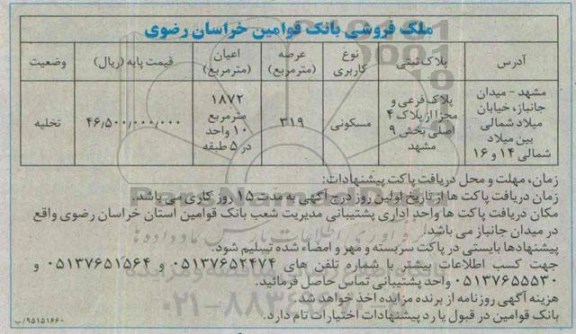 ملک فروشی بانک قوامین خراسان رضوی
آدرس
پلاک ثبتی
نوع کاربری
عرصه (مترمربع)
اعیان (مترمربع)
قیمت پایه (ریال)
وضعیت
مشهد - میدان جانباز، خیابان میلاد شمالی بین میلاد شمالی ۱۴ و ۱۶
پلاک فرعی و مجزا از پلاک ۴ اصلی بخش ۹ مشهد
مسکونی
۳۱۹
۱۸۷۲ مترمربع ۱۰ واحد در ۵ طبقه
۴۶/۵۰۰/۰۰۰/۰۰۰
تخلیه
زمان، مهلت و محل دریافت پاکت پیشنهادات:
زمان دریافت پاکت ها از تاریخ اولین روز درج آگهی به مدت ۱۵ روز کاری می باشد.
مکان دریافت پاکت ها واحد اداری پشتیبانی مدیریت شعب بانک قوامین استان خراسان رضوی واقع
در میدان جانباز می باشد.
پیشنهادها بایستی در پاکت سربسته و مهر و امضاء شده تسلیم شود.
جهت کسب اطلاعات بیشتر با شماره تلفن های ۰۵۱۳۷۶۵۲۴۷۴ و ۰۵۱۳۷۶۵۱۵۶۴ و
۰۵۱۳۷۶۵۵۵۳۰ واحد پشتیبانی تماس حاصل فرمائید.
هزینه آگهی روزنامه از برنده مزایده اخذ خواهد شد.
بانک قوامین در قبول یا رد پیشنهادات اختیار تام دارد.
۹۵۱۵۱۶۶۰/ب